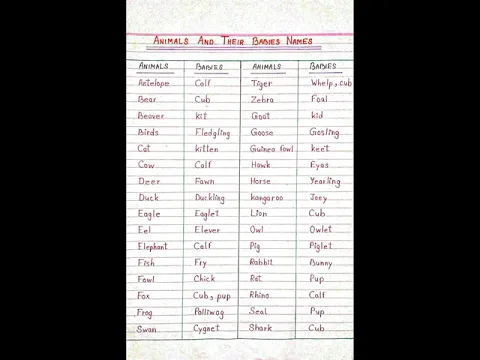 Animals And Their Babies Names
Animals Babies Animals Babies
Antelope Calf Tiger Whelp, cub
Bear Cub Zebra Foal
Beaver kit Goat kid
Birds Fledgling Goose Gosling
Cat kitten Guinea fowl keet
Cow Calf Hawk Eyas
Deer Fawn Horse Yearling
Duck Duckling kangaroo Joey
Eagle Eaglet Lion Cub
Eel Elever Owl Owlet
Elephant Calf Pig Piglet
Fish Fry Rabbit Bunny
Fowl Chick Rat Pup
Fox Cub, pup Rhino Calf
Frog Polliwog Seal Pup
Swan Cygnet Shark Cub